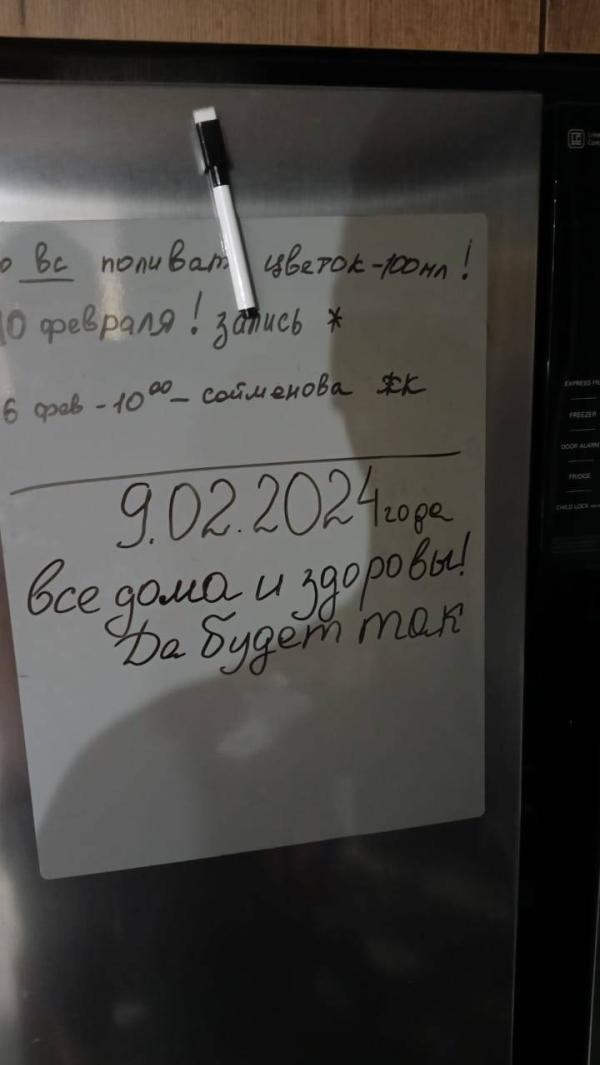 о вс поливат цветок-100мл!
10 февраля! запись *
6 фев - 10⁰⁰ - сойменова ЖК
9.02.2024 года
все дома и здоровы!
Да будет так
EXPRESS
FREEZER
DOOR ALARM
FRIDGE
CHILD LOCK